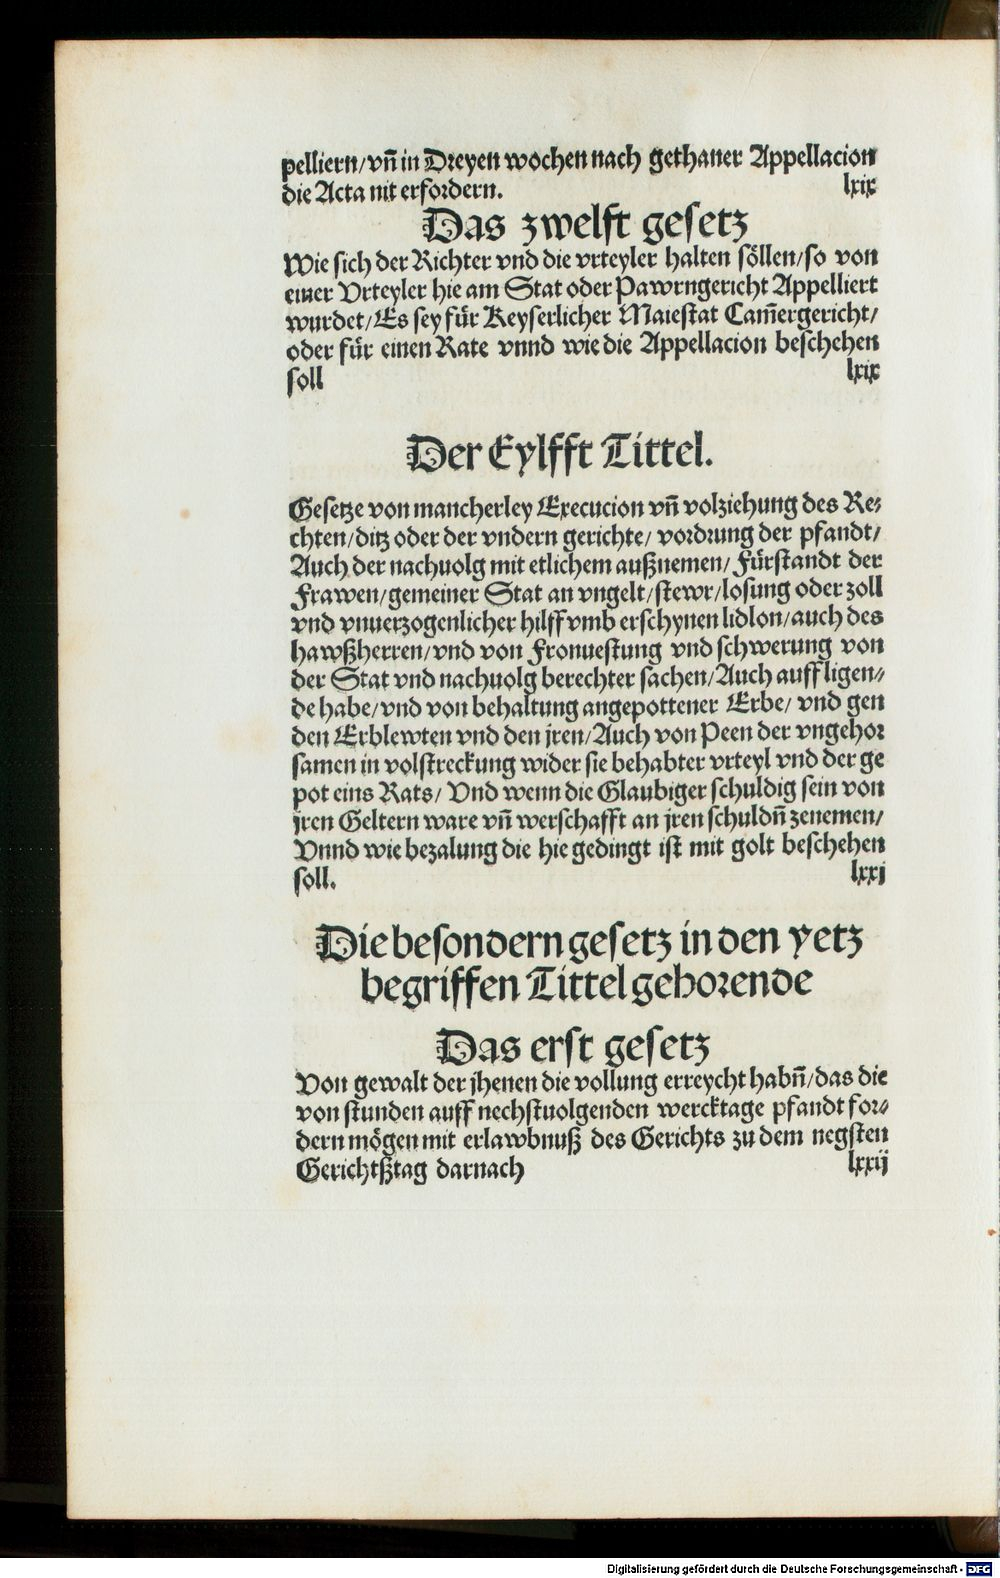 pelliern/vñ in Dreyen wochen nach gethaner Appellacion
die Acta nit erfordern. lxix
Das zwelft gesetz
Wie sich der Richter vnd die vrteyler halten söllen/so von
einer Vrteyler hie am Stat oder Pawrngericht Appelliert
wurdet/Es sey für Keyserlicher Maiestat Cam̃ergericht/
oder für einen Rate vnnd wie die Appellacion beschehen
soll lxix
Der Eylfft Tittel.
Gesetze von mancherley Execucion vñ volziehung des Re⸗
chten/ditz oder der vndern gerichte/ vordrung der pfandt/
Auch der nachuolg mit etlichem außnemen/ Fürstandt der
Frawen/gemeiner Stat an vngelt/stewr/losung oder zoll
vnd vnuerzogenlicher hilff vmb erschynen lidlon/auch des
hawßherren/vnd von Fronuestung vnd schwerung von
der Stat vnd nachuolg berechter sachen/Auch auff ligen⸗
de habe/vnd von behaltung angepottener Erbe/ vnd gen
den Erblewten vnd den jren/Auch von Peen der vngehor
samen in volstreckung wider sie behabter vrteyl vnd der ge
pot eins Rats/ Vnd wenn die Glaubiger schuldig sein von
jren Geltern ware vñ werschafft an jren schuldñ zenemen/
Vnnd wie bezalung die hie gedingt ist mit golt beschehen
soll. lxxj
Die besondern gesetz in den yetz
begriffen Tittel gehorende
Das erst gesetz
Von gewalt der jhenen die vollung erreycht habñ/das die
von stunden auff nechstuolgenden wercktage pfandt for⸗
dern mögen mit erlawbnuß des Gerichts zu dem negsten
Gerichtßtag darnach lxxij
Digitalisierung gefördert durch die Deutsche Forschungsgemeinschaft - DFG